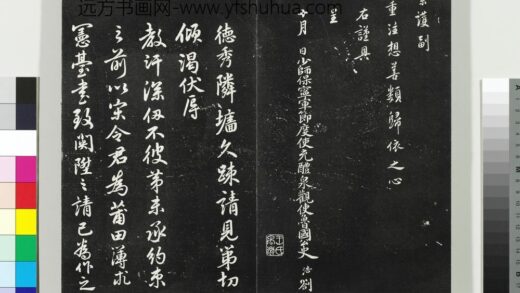 远方书画网-www.yfshuhua.com
保護副
重注想善類歸依之心
右謹具
呈
十月 日少師保寧軍節度使充醴泉觀使魯國公史 浩 劄
德秀隣壚久疎請見第切
傾渴伏辱
教汗深伹不彼第未承約束
之前以宋令君為莆田簿求
憲臺書致関陞之請已為作之